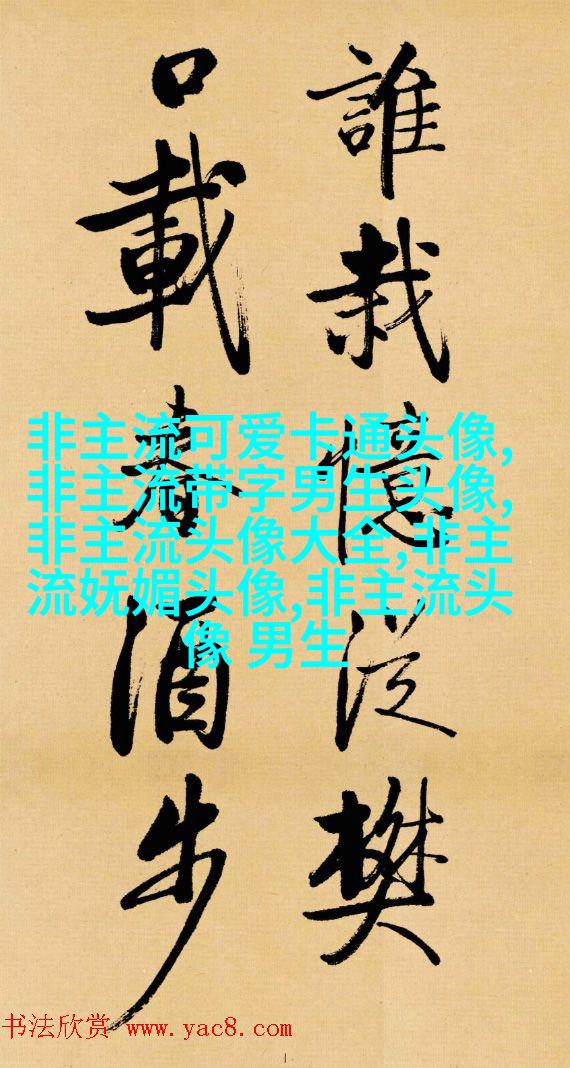 誰栽憶從樊
口載春酒步
非主流可爱卡通头像,
非主流带字男生头像,
非主流头像大全,非主
流妩媚头像,非主流头
像 男生
书法欣赏 www.yac8.com